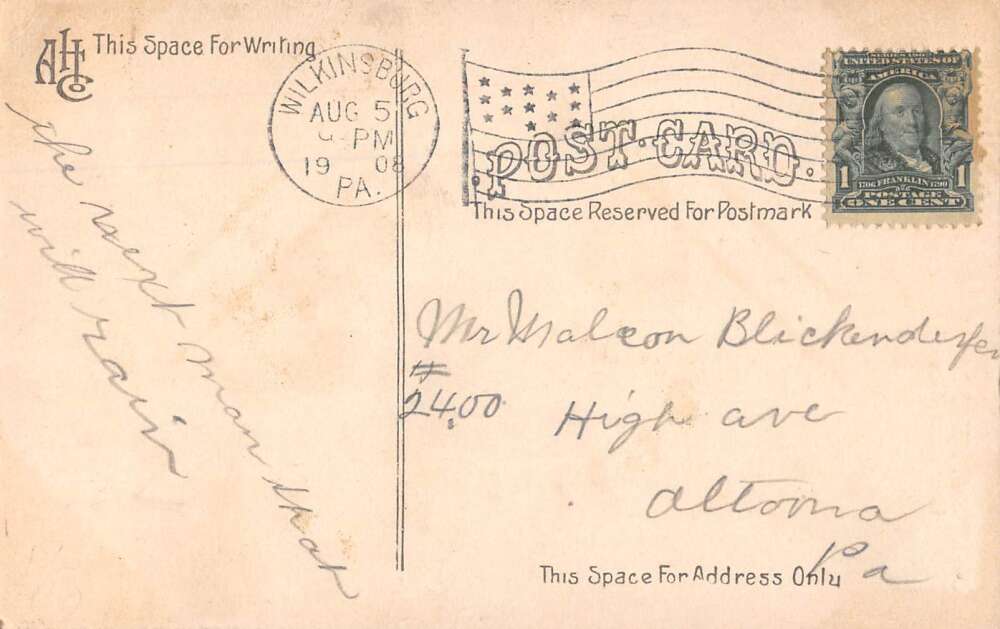 AHCo
This Space For Writing
WILKINSBURG
AUG 5
PM
1908
PA.
POST CARD.
This Space Reserved For Postmark
UNITED STATES OF
AMERICA
1706 FRANKLIN 1790
1 1
POSTAGE
ONE CENT
the next man that
will rain
Mr Malcon Blickenderfer
#
2400 High ave
Altoona
Pa.
This Space For Address Only